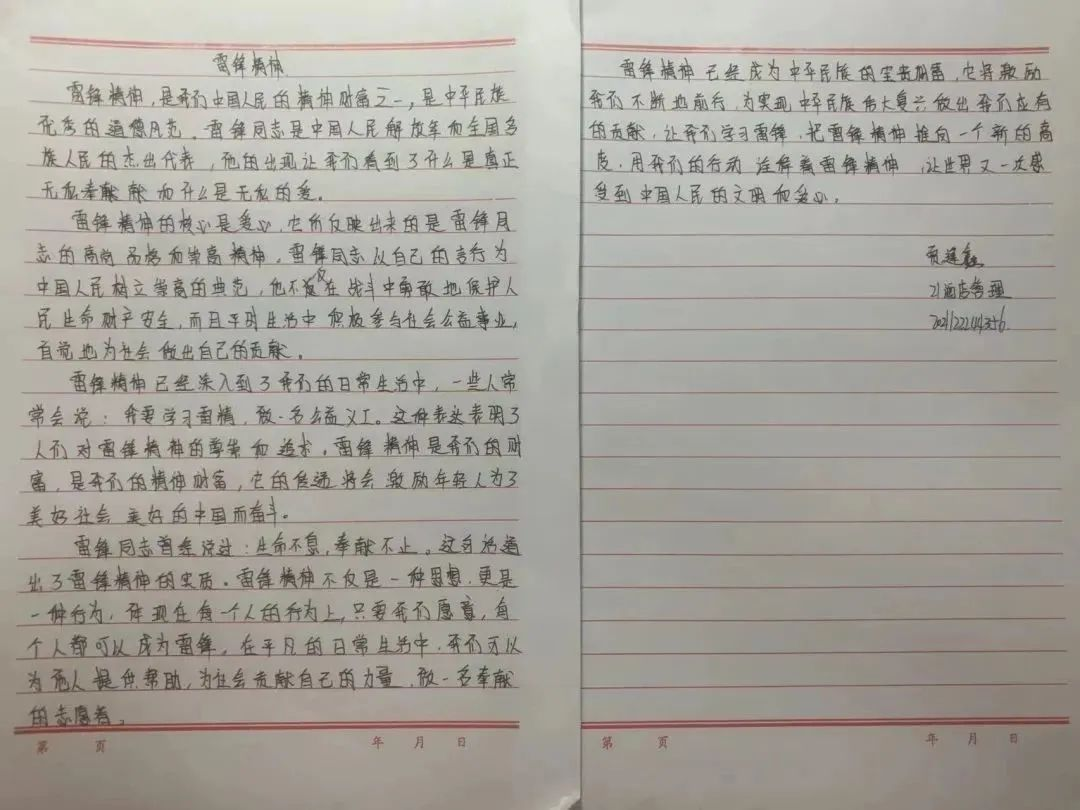 雷锋精神
雷锋精神，是我们中国人民的精神财富之一，是中华民族
优秀的道德风范。雷锋同志是中国人民解放军和全国各
族人民的杰出代表，他的出现让我们看到了什么是真正
无私奉献献和什么是无私的爱。
雷锋精神的核心是爱心，它所反映出来的是雷锋同
志的高尚品格和崇高精神。雷锋同志以自己的言行为
中国人民树立崇高的典范，他不仅在战斗中勇敢地保护人
民生命财产安全，而且平时生活中积极参与社会公益事业，
自觉地为社会做出自己的贡献。
雷锋精神已经深入到了我们的日常生活中，一些人常
常会说：我要学习雷精，做一名公益义工。这种表达表明了
人们对雷锋精神的尊崇和追求。雷锋精神是我们的财
富，是我们的精神财富，它的传递将会激励年轻人为了
美好社会美好的中国而奋斗。
雷锋同志曾经说过：生命不息，奉献不止。这句话道
出了雷锋精神的实质。雷锋精神不仅是一种思想，更是
一种行为，体现在每一个人的行为上，只要我们愿意，每
个人都可以成为雷锋，在平凡的日常生活中，我们可以
为他人提供帮助，为社会贡献自己的力量，做一名奉献
的志愿者。
第 页 年 月 日
雷锋精神已经成为中华民族的宝贵财富，它将激励
我们不断地前行，为实现中华民族伟大复兴做出我们应有
的贡献，让我们学习雷锋，把雷锋精神推向一个新的高
度，用我们的行动诠释着雷锋精神，让世界又一次感
受到中国人民的文明和爱心。
21酒店管理
第 页 年 月 日